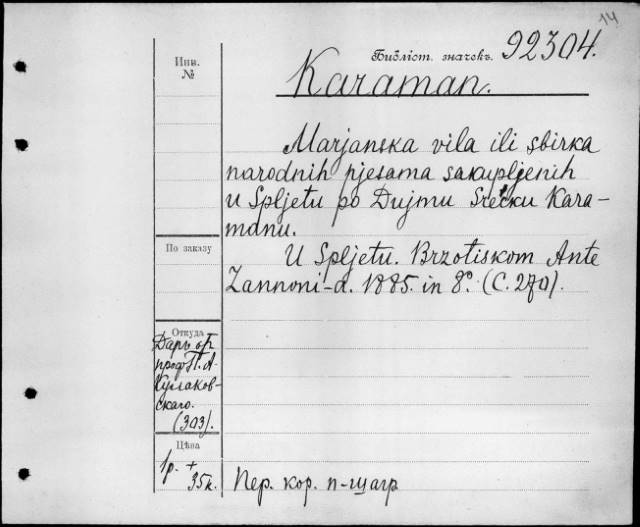 14
Инв.
№
Библіот. значекъ. 92304.
Karaman.
Marjanska vila ili sbirka
narodnih pjesama sakupljenih
u Spljetu po Dujmu Srećku Kara-
manu.
По заказу
U Spljetu. Brzotiskom Ante
Zannoni-a. 1885. in 8º. (C. 270).
Откуда
Даръ от
проф. П. А.
Кулаков-
скаго.
(303).
Цѣна
1р. +
35к.
Пер. кор. п-шагр